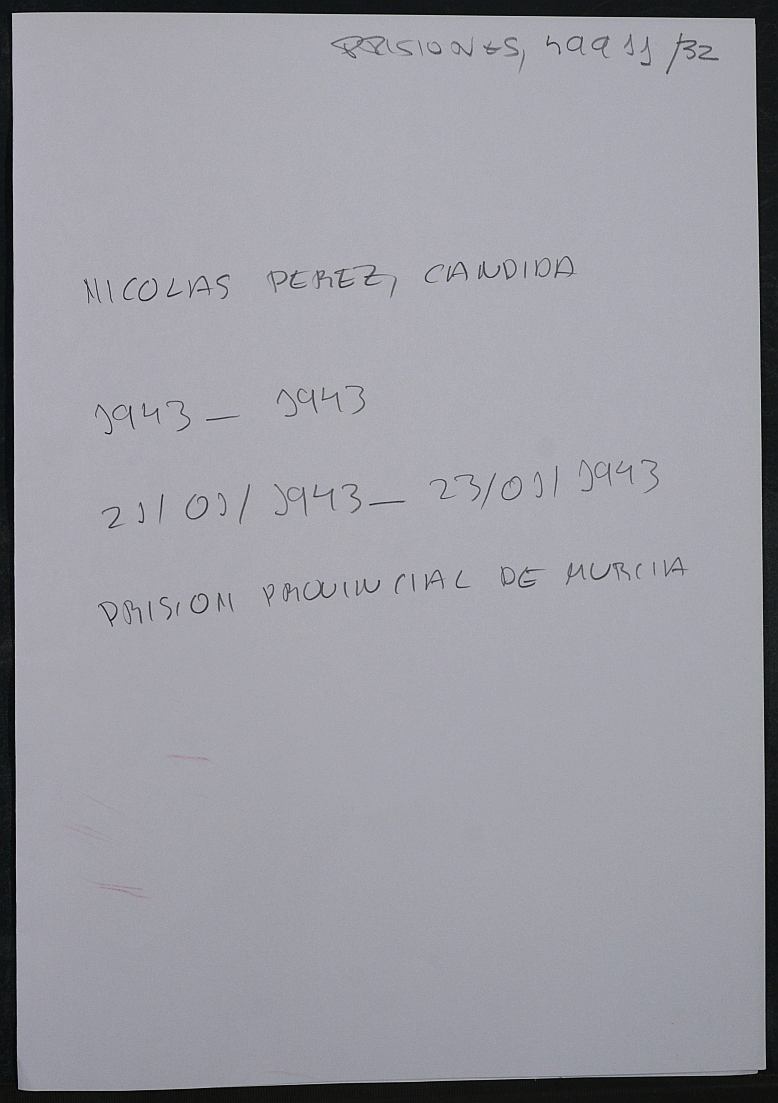 PRISIONES, 49911/32
NICOLAS PEREZ, CANDIDA
1943 - 1943
21/01/1943 - 23/01/1943
PRISION PROVINCIAL DE MURCIA